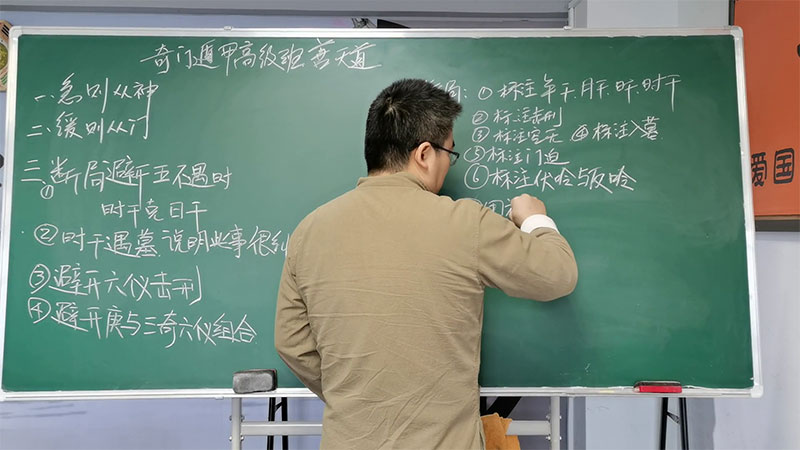 奇门遁甲高级班 善天道
一、急则从神
二、缓则从门
三、断局避开五不遇时
① 时干克日干
②时干遇墓,说明此事很纠
③避开六仪击刑
④避开庚与三奇六仪组合
局: ①标注年干、月干、日干、时干
②标注击刑
③标注空亡 ④标注入墓
⑤标注门迫
⑥标注伏吟与反吟
爱国